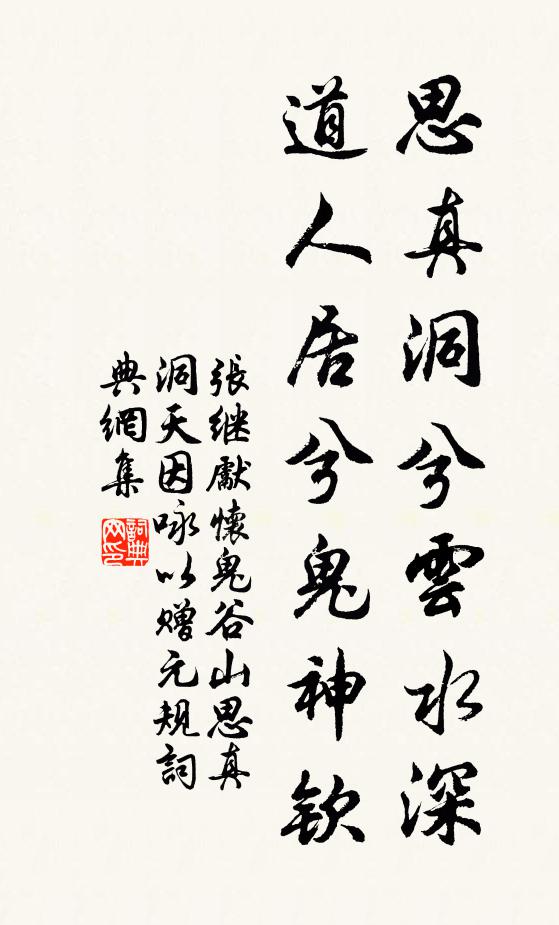 思真洞兮雲水深
道人居兮鬼神欽
張继獻懷鬼谷山思真
洞天因咏以赠元規詞
典網集
詞典
网印